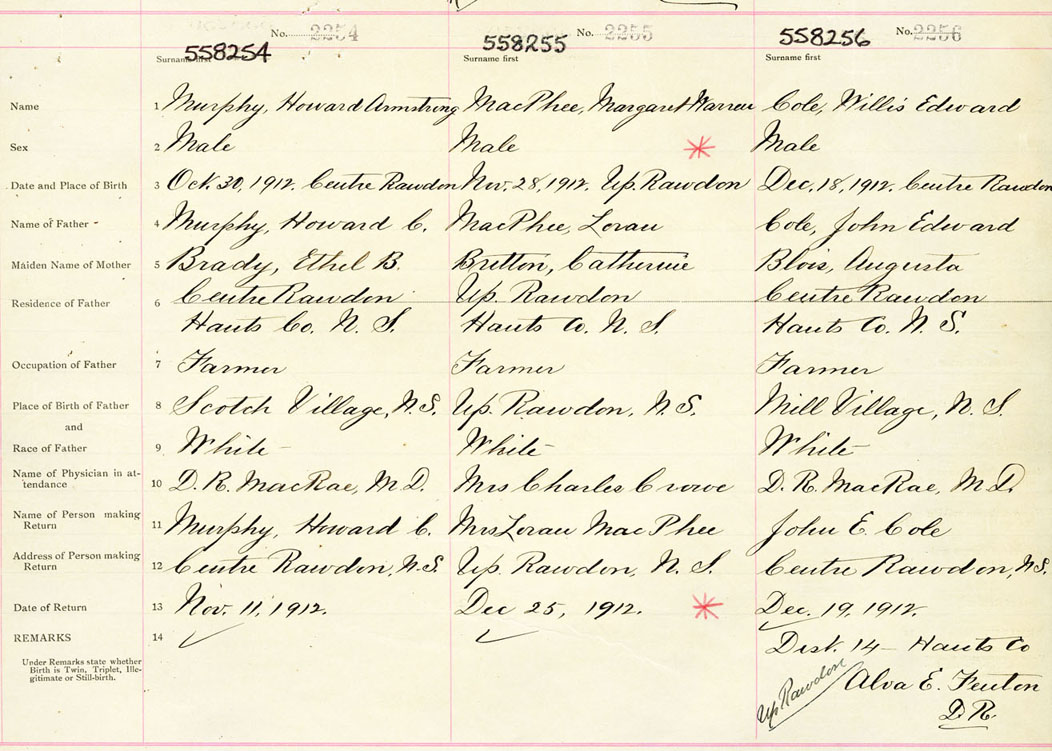 No. 2254 No. 2255 No. 2256
558254 558255 558256
Surname first Surname first Surname first
Name 1 Murphy, Howard Armstrong MacPhee, Margaret Warren Cole, Willis Edward
Sex 2 Male Male Male
Date and Place of Birth 3 Oct. 30, 1912. Centre Rawdon Nov. 28, 1912. Up. Rawdon Dec. 18, 1912. Centre Rawdon
Name of Father 4 Murphy, Howard C. MacPhee, Loran Cole, John Edward
Maiden Name of Mother 5 Brady, Ethel B. Britton, Catherine Blois, Augusta
Residence of Father 6 Centre Rawdon Up. Rawdon Centre Rawdon
Hants Co. N. S. Hants Co. N. S. Hants Co. N. S.
Occupation of Father 7 Farmer Farmer Farmer
Place of Birth of Father 8 Scotch Village, N.S. Up. Rawdon, N.S. Mill Village, N. S.
and
Race of Father 9 White White White
Name of Physician in at-
tendance 10 D. R. MacRae, M.D. Mrs Charles Crowe D. R. MacRae, M.D.
Name of Person making
Return 11 Murphy, Howard C. Mrs Loran MacPhee John E. Cole
Address of Person making
Return 12 Centre Rawdon, N.S. Up. Rawdon, N. S. Centre Rawdon, N.S.
Date of Return 13 Nov. 11, 1912. Dec 25, 1912. Dec. 19, 1912.
REMARKS 14
Dist. 14 - Hants Co
Under Remarks state whether
Birth is Twin, Triplet, Ille-
gitimate or Still-birth.
Up Rawdon Alva E. Fenton
D. R.